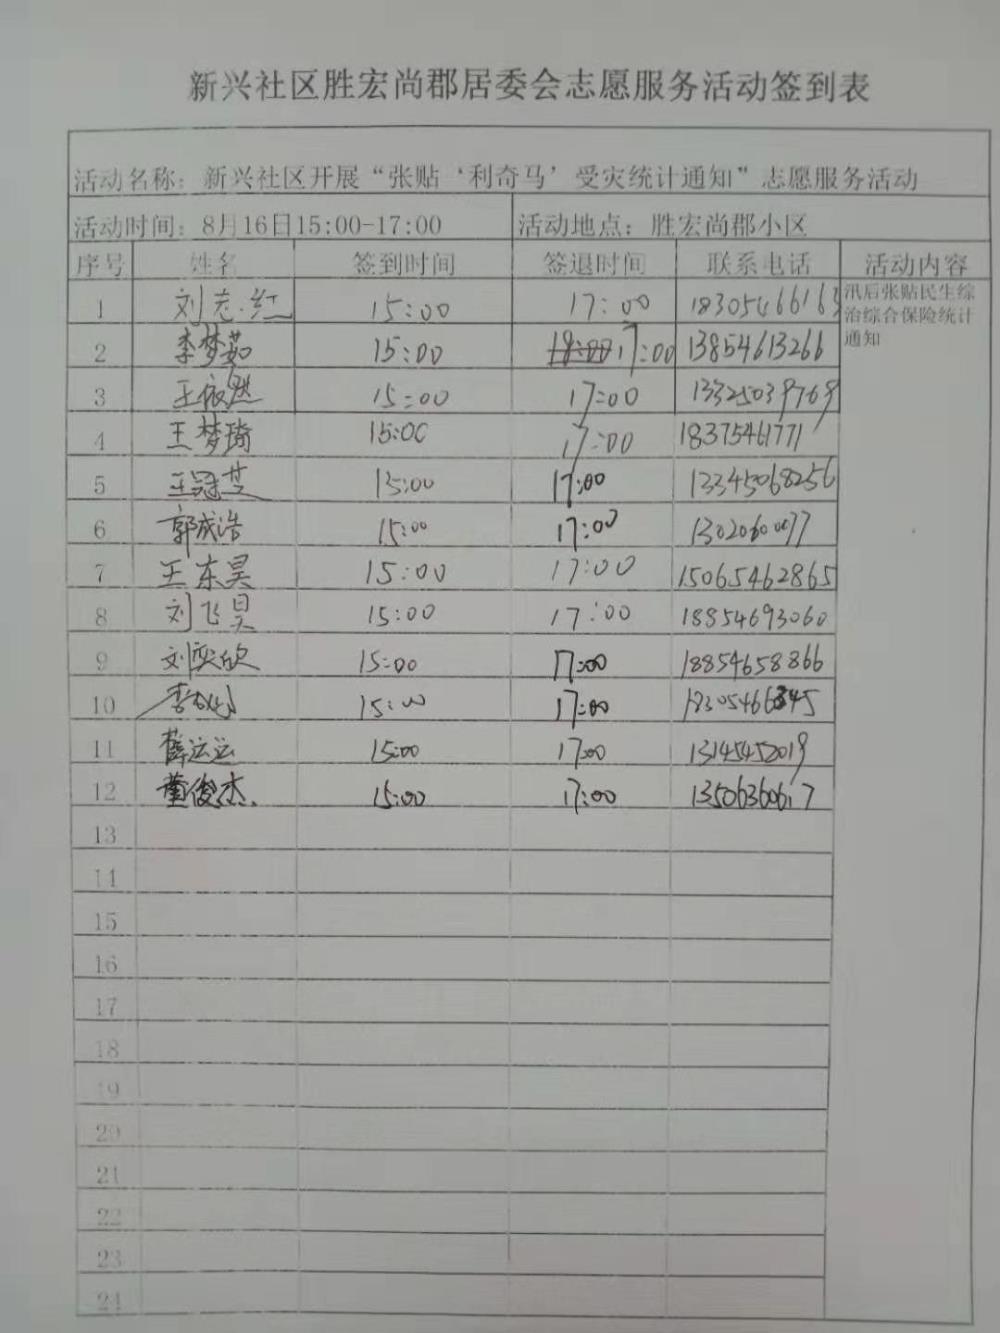 新兴社区胜宏尚郡居委会志愿服务活动签到表
活动名称：新兴社区开展“张贴‘利奇马’受灾统计通知”志愿服务活动
活动时间：8月16日15:00-17:00 活动地点：胜宏尚郡小区
序号 姓名 签到时间 签退时间 联系电话 活动内容
汛后张贴民生综
治综合保险统计
通知
1 刘志红 15:00 17:00 1830546616
2 李梦茹 15:00 17:00 13854613266
3 王依然 15:00 17:00 13325039769
4 王梦琦 15:00 17:00 18375461771
5 王冠 15:00 17:00 13345068256
6 郭成浩 15:00 17:00
7 王东昊 15:00 17:00 15065462865
8 刘飞昊 15:00 17:00 18854693060
9 刘奕欣 15:00 17:00 18854658866
10 李 15:00 17:00 18305466345
11 薛运运 15:00 17:00 13145452019
12 董俊杰 15:00 17:00 13506360617
13
14
15
16
17
18
19
20
21
22
23
24